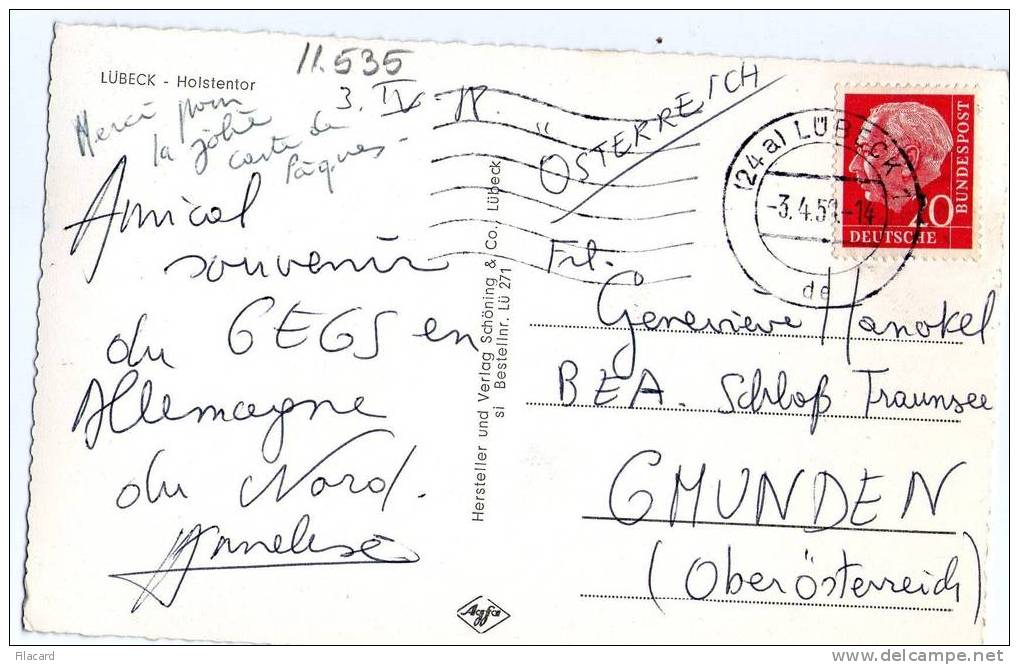 LÜBECK - Holstentor
11.535
3. IV
Merci pour
la jolie
carte de
Pâques -
Amical
souvenir
du GEGS en
Allemagne
du Nord.
Annelise
Hersteller und Verlag Schöning & Co., Lübeck
si Bestellnr. Lü 271
Agfa
ÖSTERREICH
(24a) LÜBECK 1
-3.4.59.-14
de
BUNDESPOST
20
DEUTSCHE
Frl.
Geneviève Hanokel
BEA. Schloß Traunsee
GMUNDEN
(Oberösterreich)
Filacard
www.delcampe.net